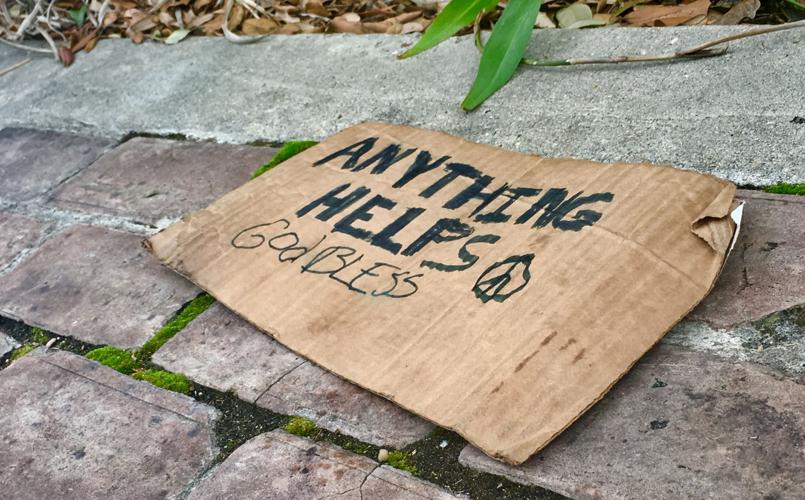 ANYTHING
HELPS
GOd BLESS